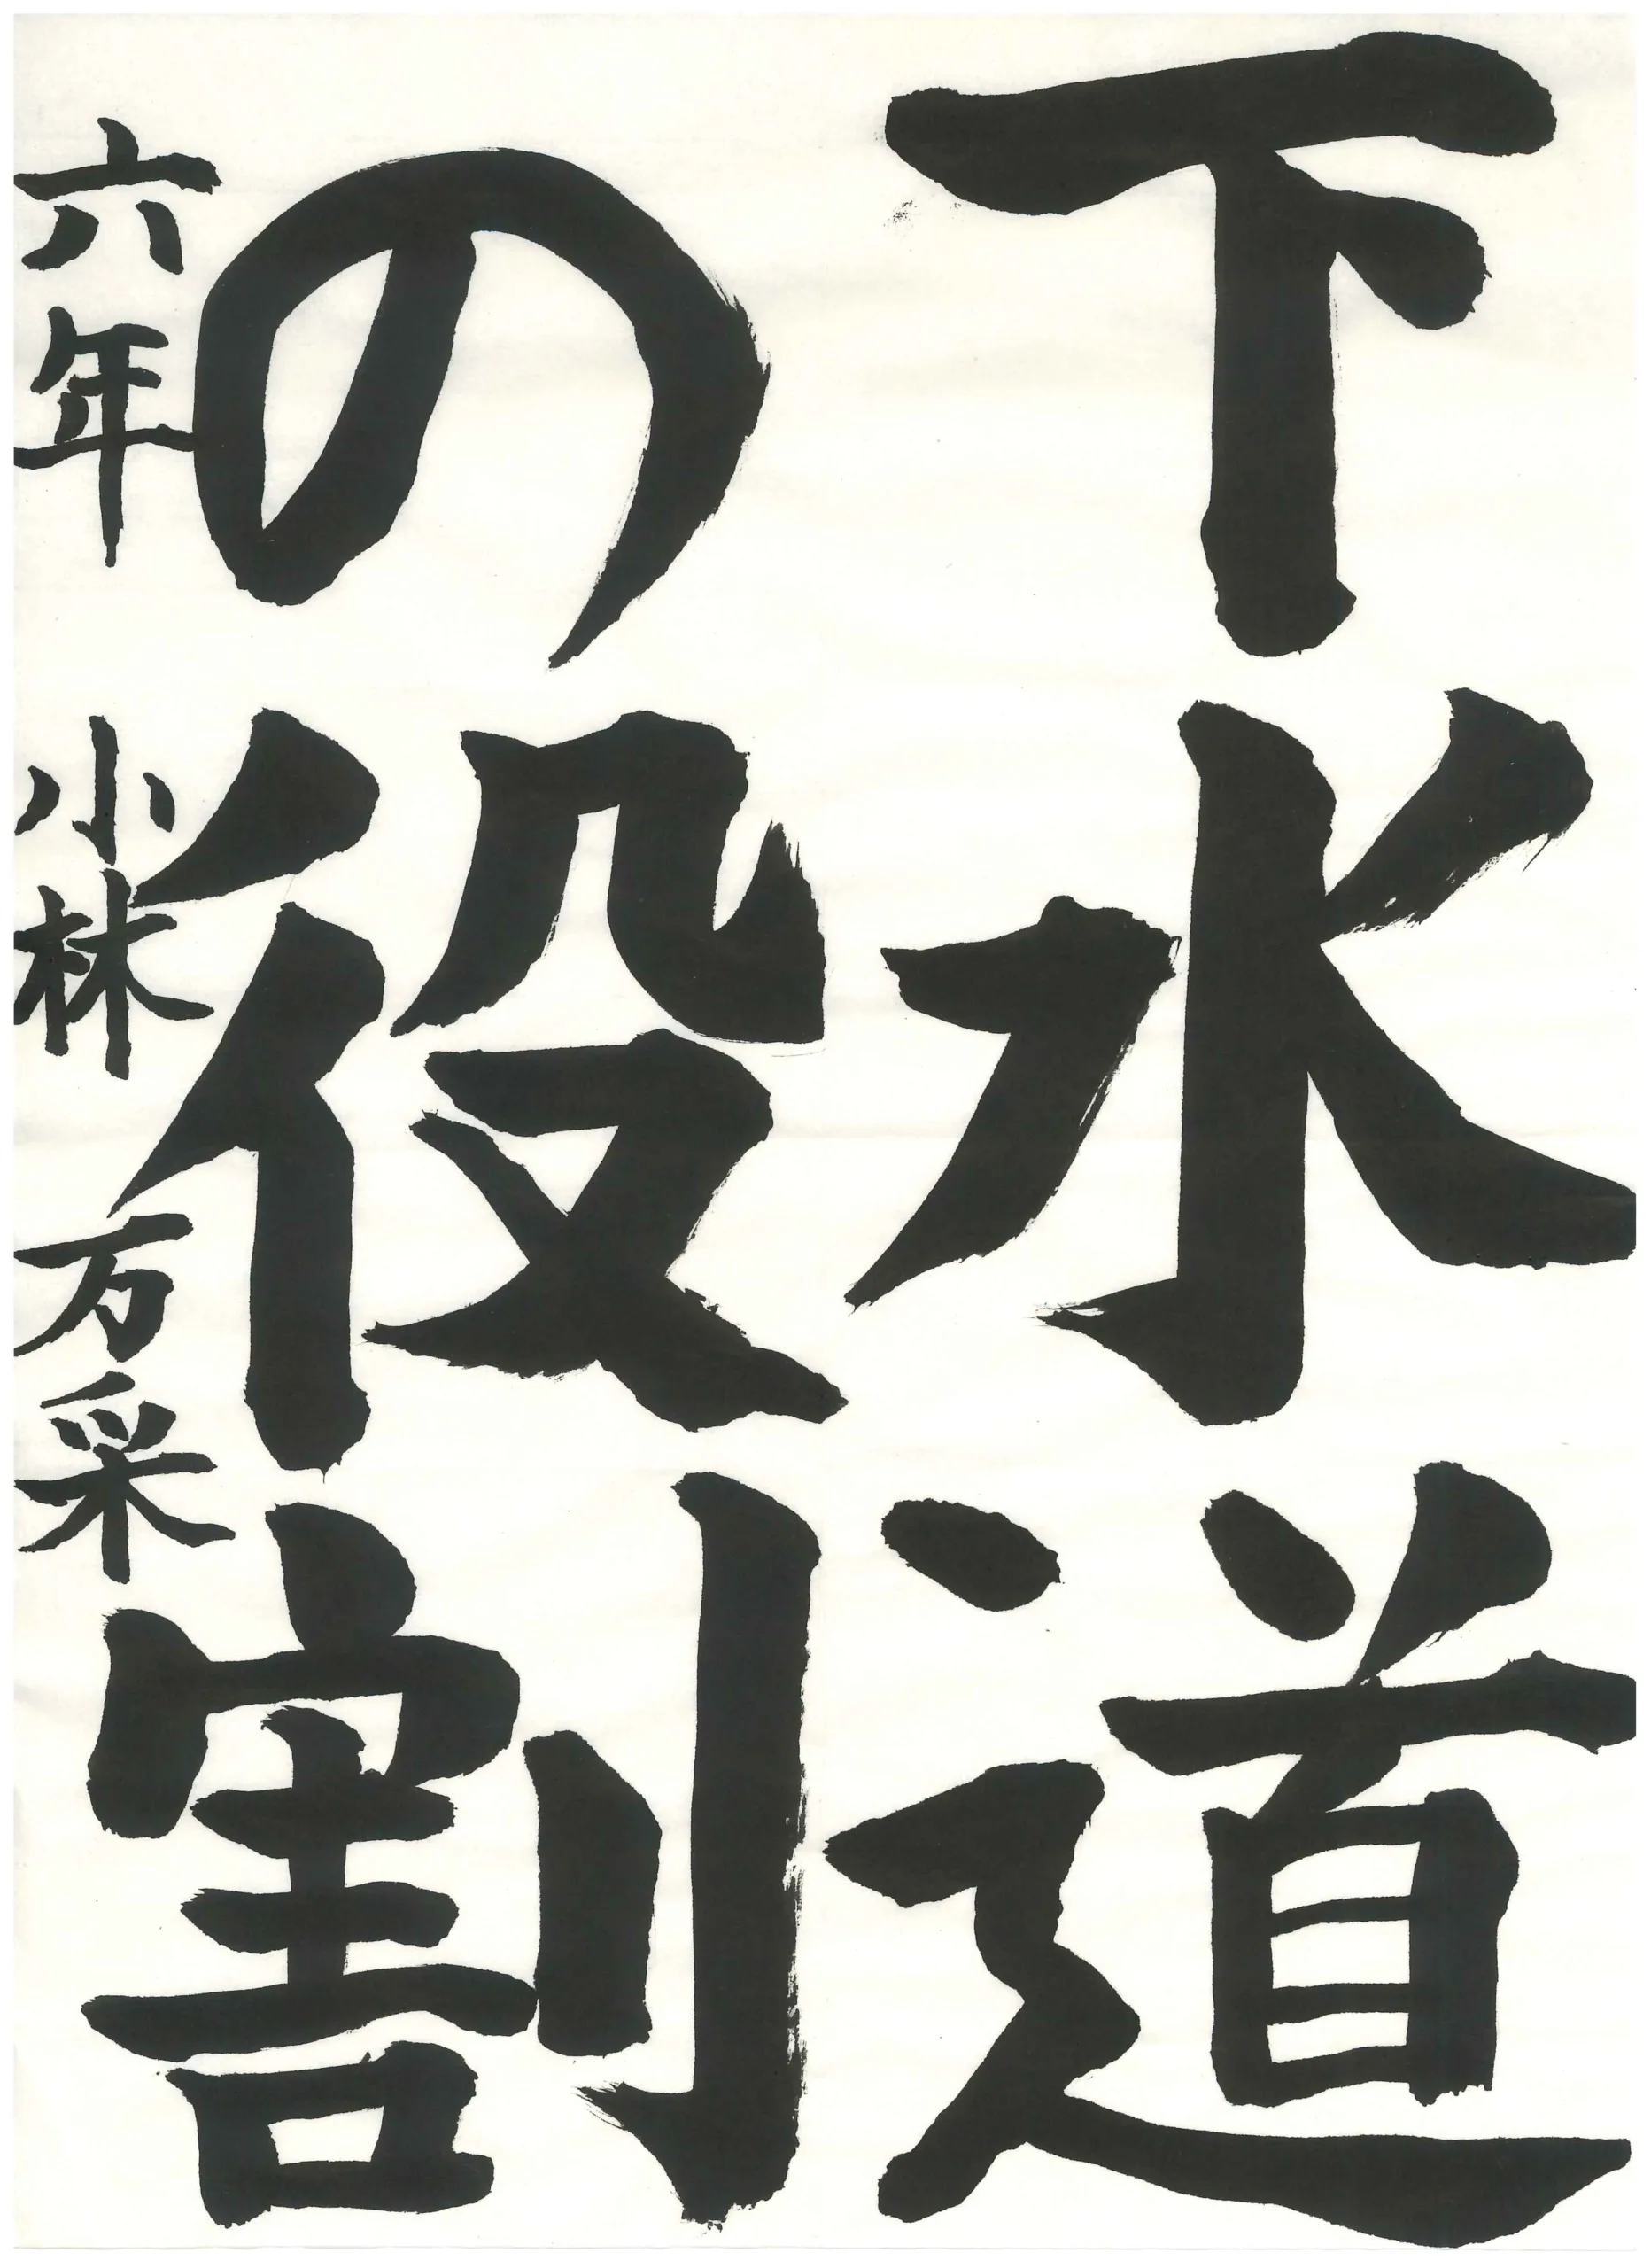 下水道
の役割
六年 小林 万采